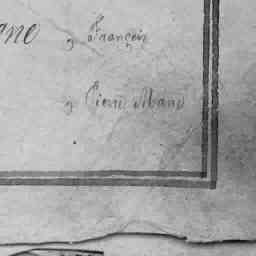 ane , François
, Pierre Marie